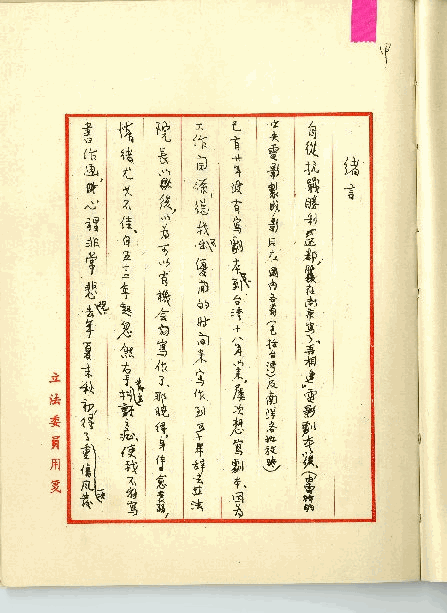 中
緒言
自從抗戰勝利還都後在南京寫了「吾相逢」電影劇本後(曾由
中央電影製片影片在國內各省(包括台灣)及南洋各地放映)
已有廿年沒有寫劇本。到台灣十八年以來，屢次想寫劇本，因為
工作關係，總找不出優閒的時間來寫作，到五十年辭去立法
院長以後，以為可以有機會為寫作了，那曉得，身体愈衰弱，
情緒尤其不佳，自五十三年起忽然右手抖動之症，使我不能寫
書作画，心裡非常悲，去年夏末秋初，得了重傷風
立法委員用箋